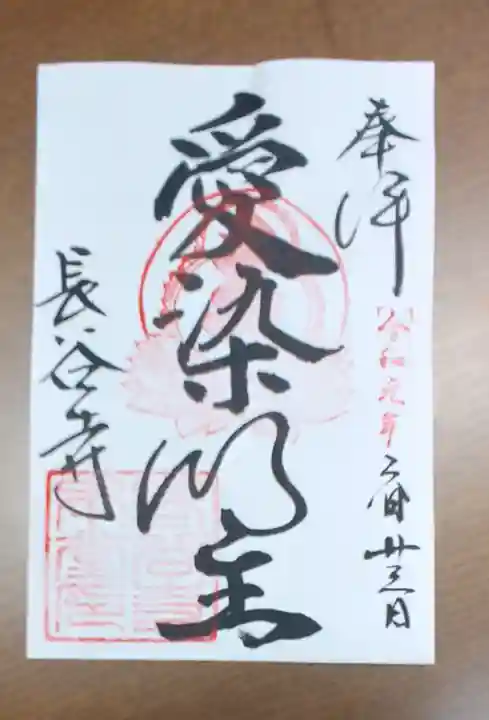 奉拝
令和元年 廿三日
愛染明王
長谷寺